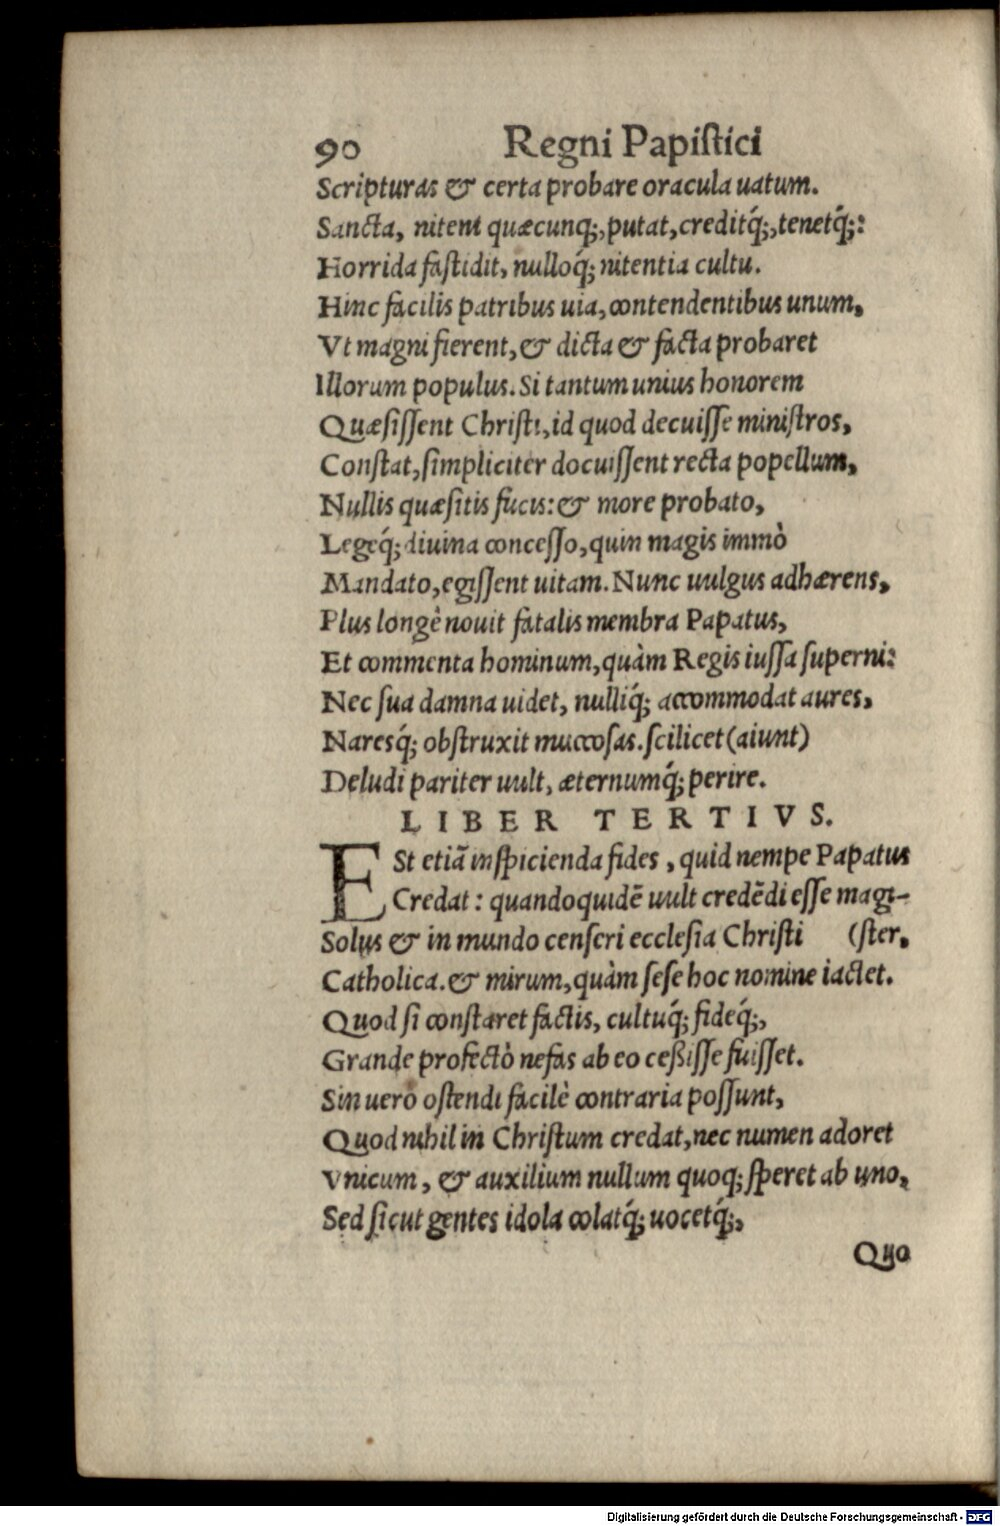 90 Regni Papiſtici
Scripturas & certa probare oracula uatum.
Sancta, nitent quæcunq;, putat, creditq́;, tenetq́;:
Horrida faſtidit, nulloq́; nitentia cultu.
Hinc facilis patribus uia, contendentibus unum,
Vt magni fierent, & dicta & facta probaret
Illorum populus. Si tantum unius honorem
Quæſiſſent Chriſti, id quod decuiſſe miniſtros,
Conſtat, ſimpliciter docuiſſent recta popellum,
Nullis quæſitis fucis: & more probato,
Legeq́; diuina conceſſo, quin magis immò
Mandato, egiſſent uitam. Nunc uulgus adhærens,
Plus longè nouit fatalis membra Papatus,
Et commenta hominum, quàm Regis iuſſa ſuperni:
Nec ſua damna uidet, nulliq́; accommodat aures,
Naresq́; obſtruxit muccoſas. ſcilicet (aiunt)
Deludi pariter uult, æternumq́; perire.
LIBER TERTIVS.
ESt etiã inſpicienda fides, quid nempe Papatus
Credat: quandoquidẽ uult credẽdi eſſe magi-
Solus & in mundo cenſeri eccleſia Chriſti (ſter,
Catholica. & mirum, quàm ſeſe hoc nomine iactet.
Quod ſi conſtaret factis, cultuq́; fideq́;,
Grande profectò nefas ab eo ceßiſſe fuiſſet.
Sin uerò oſtendi facilè contraria poſſunt,
Quod nihil in Chriſtum credat, nec numen adoret
Vnicum, & auxilium nullum quoq; ſperet ab uno,
Sed ſicut gentes idola colatq́; uocetq́;,
Quo
Digitalisierung gefördert durch die Deutsche Forschungsgemeinschaft - DFG